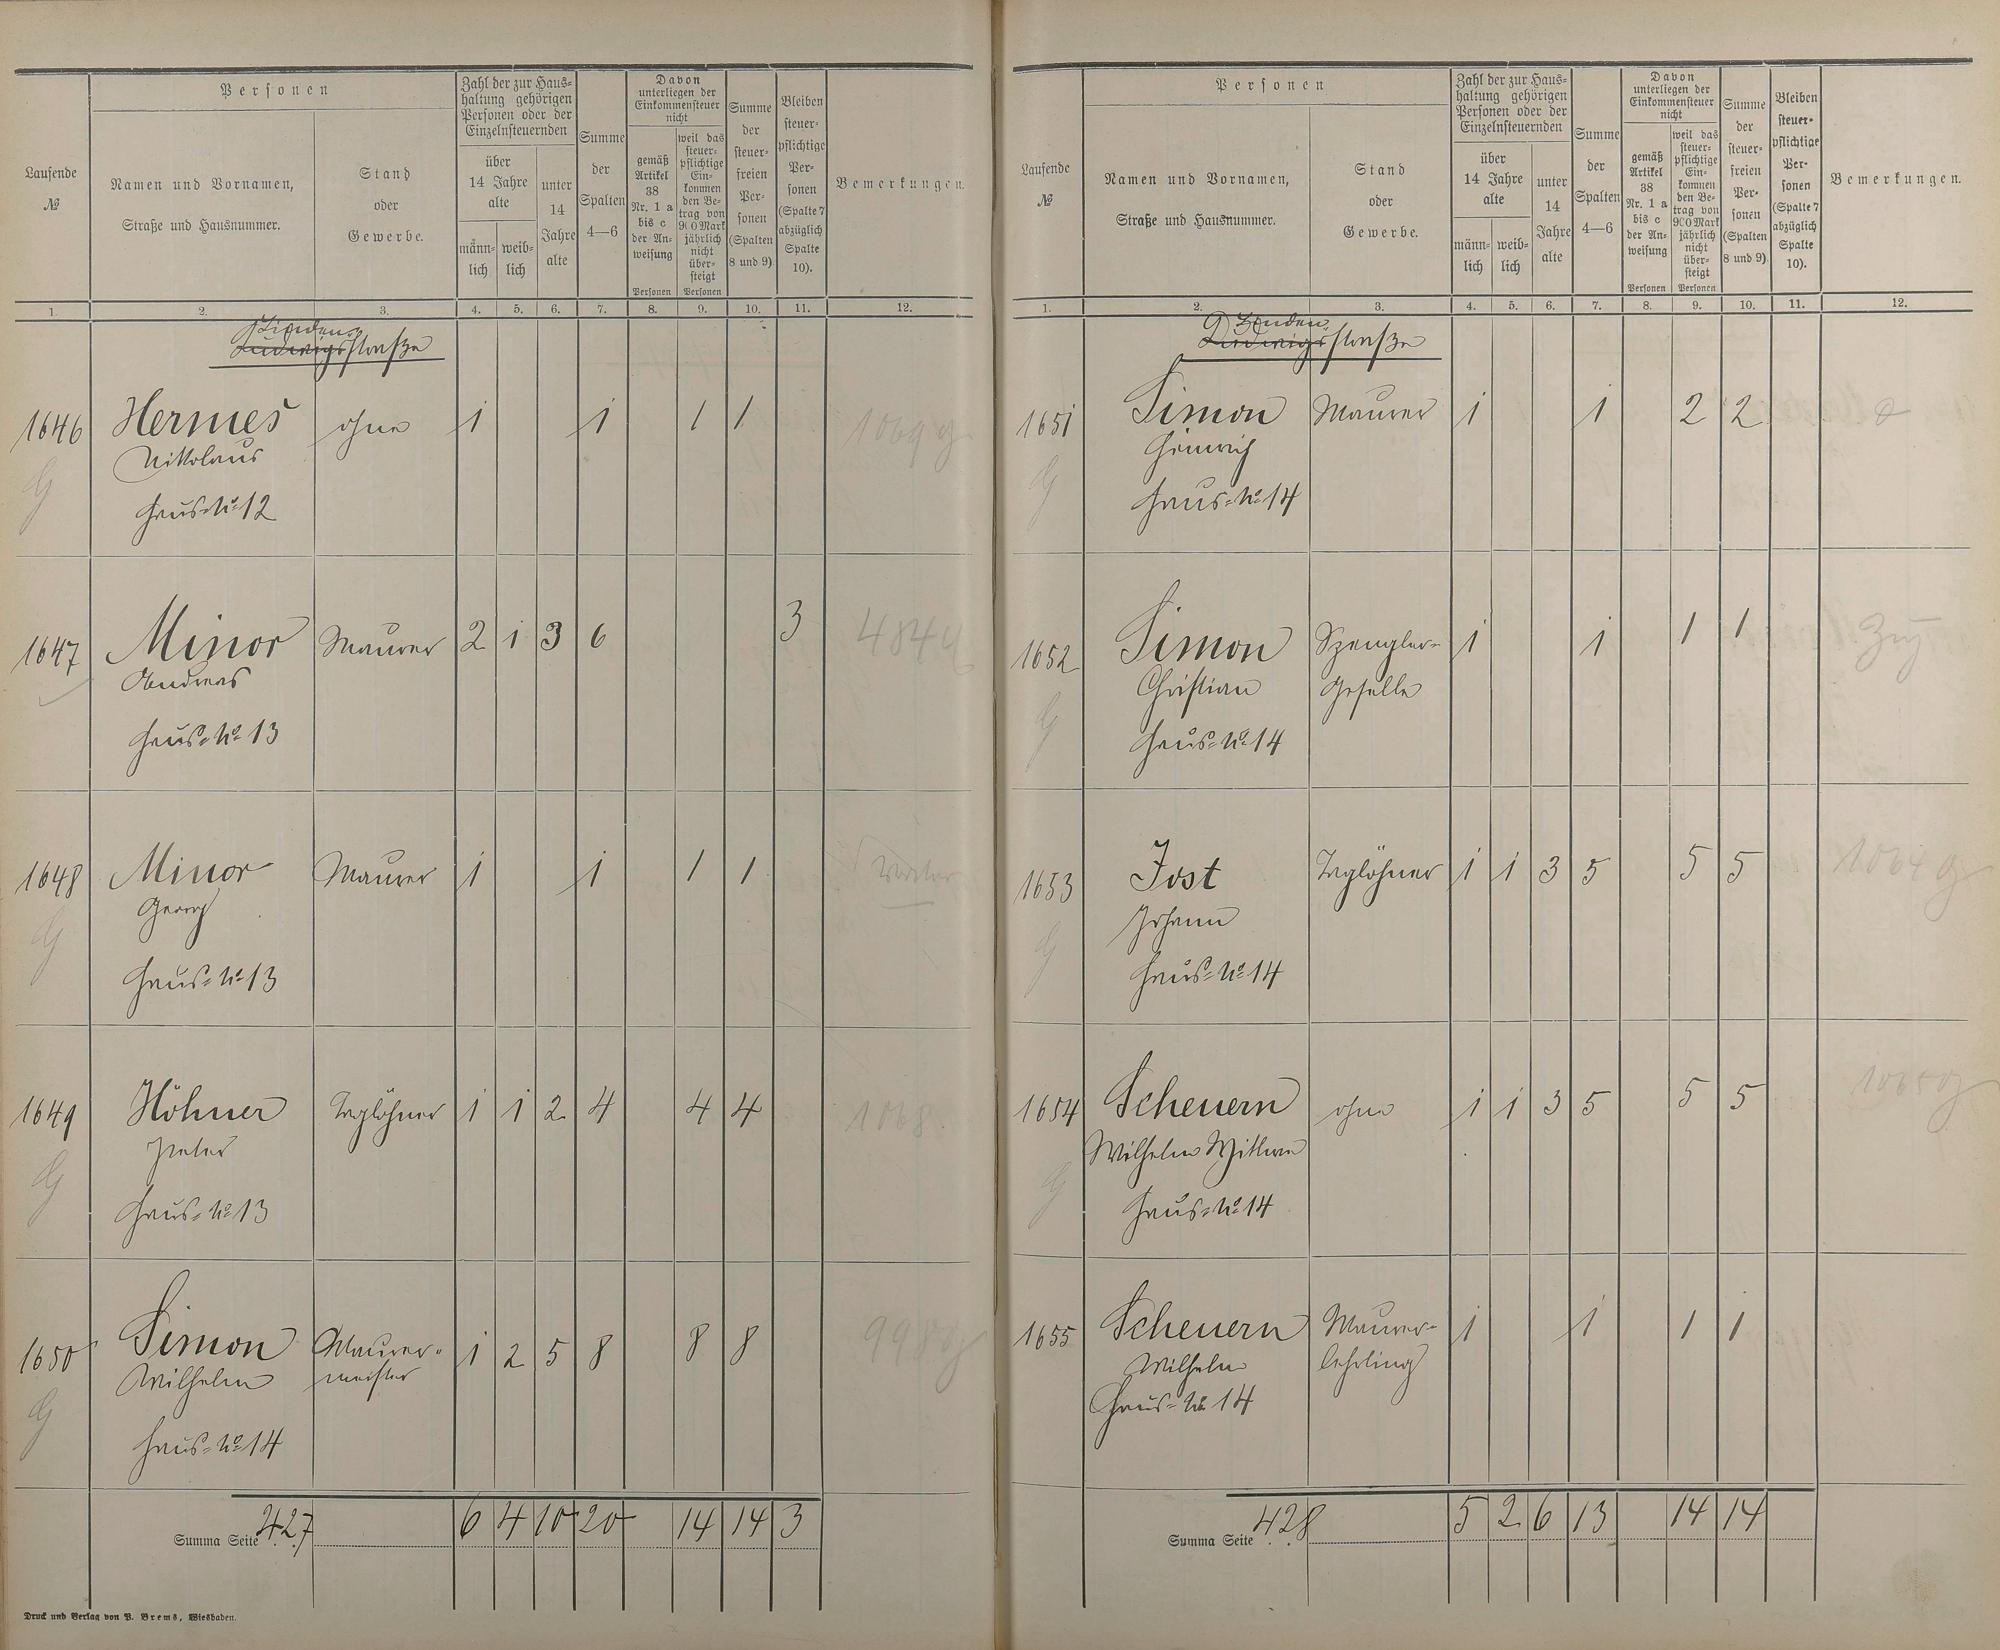 Laufende
№
Personen
Namen und Vornamen,
Straße und Hausnummer.
Stand
oder
Gewerbe.
Zahl der zur Haus-
haltung gehörigen
Personen oder der
Einzelnsteuernden
über
14 Jahre
alte
männ-
lich
weib-
lich
unter
14
Jahre
alte
Summe
der
Spalten
4—6
Davon
unterliegen der
Einkommensteuer
nicht
gemäß
Artikel
38
Nr. 1 a
bis c
der An-
weisung
Personen
weil das
steuer-
pflichtige
Ein-
kommen
den Be-
trag von
900 Mark
jährlich
nicht
über-
steigt
Personen
Summe
der
steuer-
freien
Per-
sonen
(Spalten
8 und 9)
Bleiben
steuer-
pflichtige
Per-
sonen
(Spalte 7
abzüglich
Spalte
10).
Bemerkungen.
1. 2. 3. 4. 5. 6. 7. 8. 9. 10. 11. 12.
Linden-
Ludwigsstraße
1646 Hermes ohne 1 1 1 1 1069
Nikolaus
Haus-No 12
1647 Minor Maurer 2 1 3 6 3 4844
Andreas
Haus-No 13
1648 Minor Maurer 1 1 1 1
Georg
Haus-No 13
1649 Höhner Taglöhner 1 1 2 4 4 4 1068
Peter
Haus-No 13
1650 Simon Maurer- 1 2 5 8 8 8
Wilhelm meister
Haus-No 14
Summa Seite 427 6 4 10 20 14 14 3
Druck und Verlag von P. Brems, Wiesbaden.
Laufende
№
Personen
Namen und Vornamen,
Straße und Hausnummer.
Stand
oder
Gewerbe.
Zahl der zur Haus-
haltung gehörigen
Personen oder der
Einzelnsteuernden
über
14 Jahre
alte
männ-
lich
weib-
lich
unter
14
Jahre
alte
Summe
der
Spalten
4—6
Davon
unterliegen der
Einkommensteuer
nicht
gemäß
Artikel
38
Nr. 1 a
bis c
der An-
weisung
Personen
weil das
steuer-
pflichtige
Ein-
kommen
den Be-
trag von
900 Mark
jährlich
nicht
über-
steigt
Personen
Summe
der
steuer-
freien
Per-
sonen
(Spalten
8 und 9)
Bleiben
steuer-
pflichtige
Per-
sonen
(Spalte 7
abzüglich
Spalte
10).
Bemerkungen.
1. 2. 3. 4. 5. 6. 7. 8. 9. 10. 11. 12.
Linden
Ludwigsstraße
1651 Simon Maurer 1 1 2 2
Heinrich
Haus-No 14
1652 Simon Spengler- 1 1 1 1
Christian Geselle
Haus-No 14
1653 Jost Taglöhner 1 1 3 5 5 5 1064
Johann
Haus-No 14
1654 Scheuern ohne 1 1 3 5 5 5 1065
Wilhelm Wittwe
Haus-No 14
1655 Scheuern Maurer- 1 1 1 1
Wilhelm lehrling
Haus-No 14
Summa Seite 428 5 2 6 13 14 14